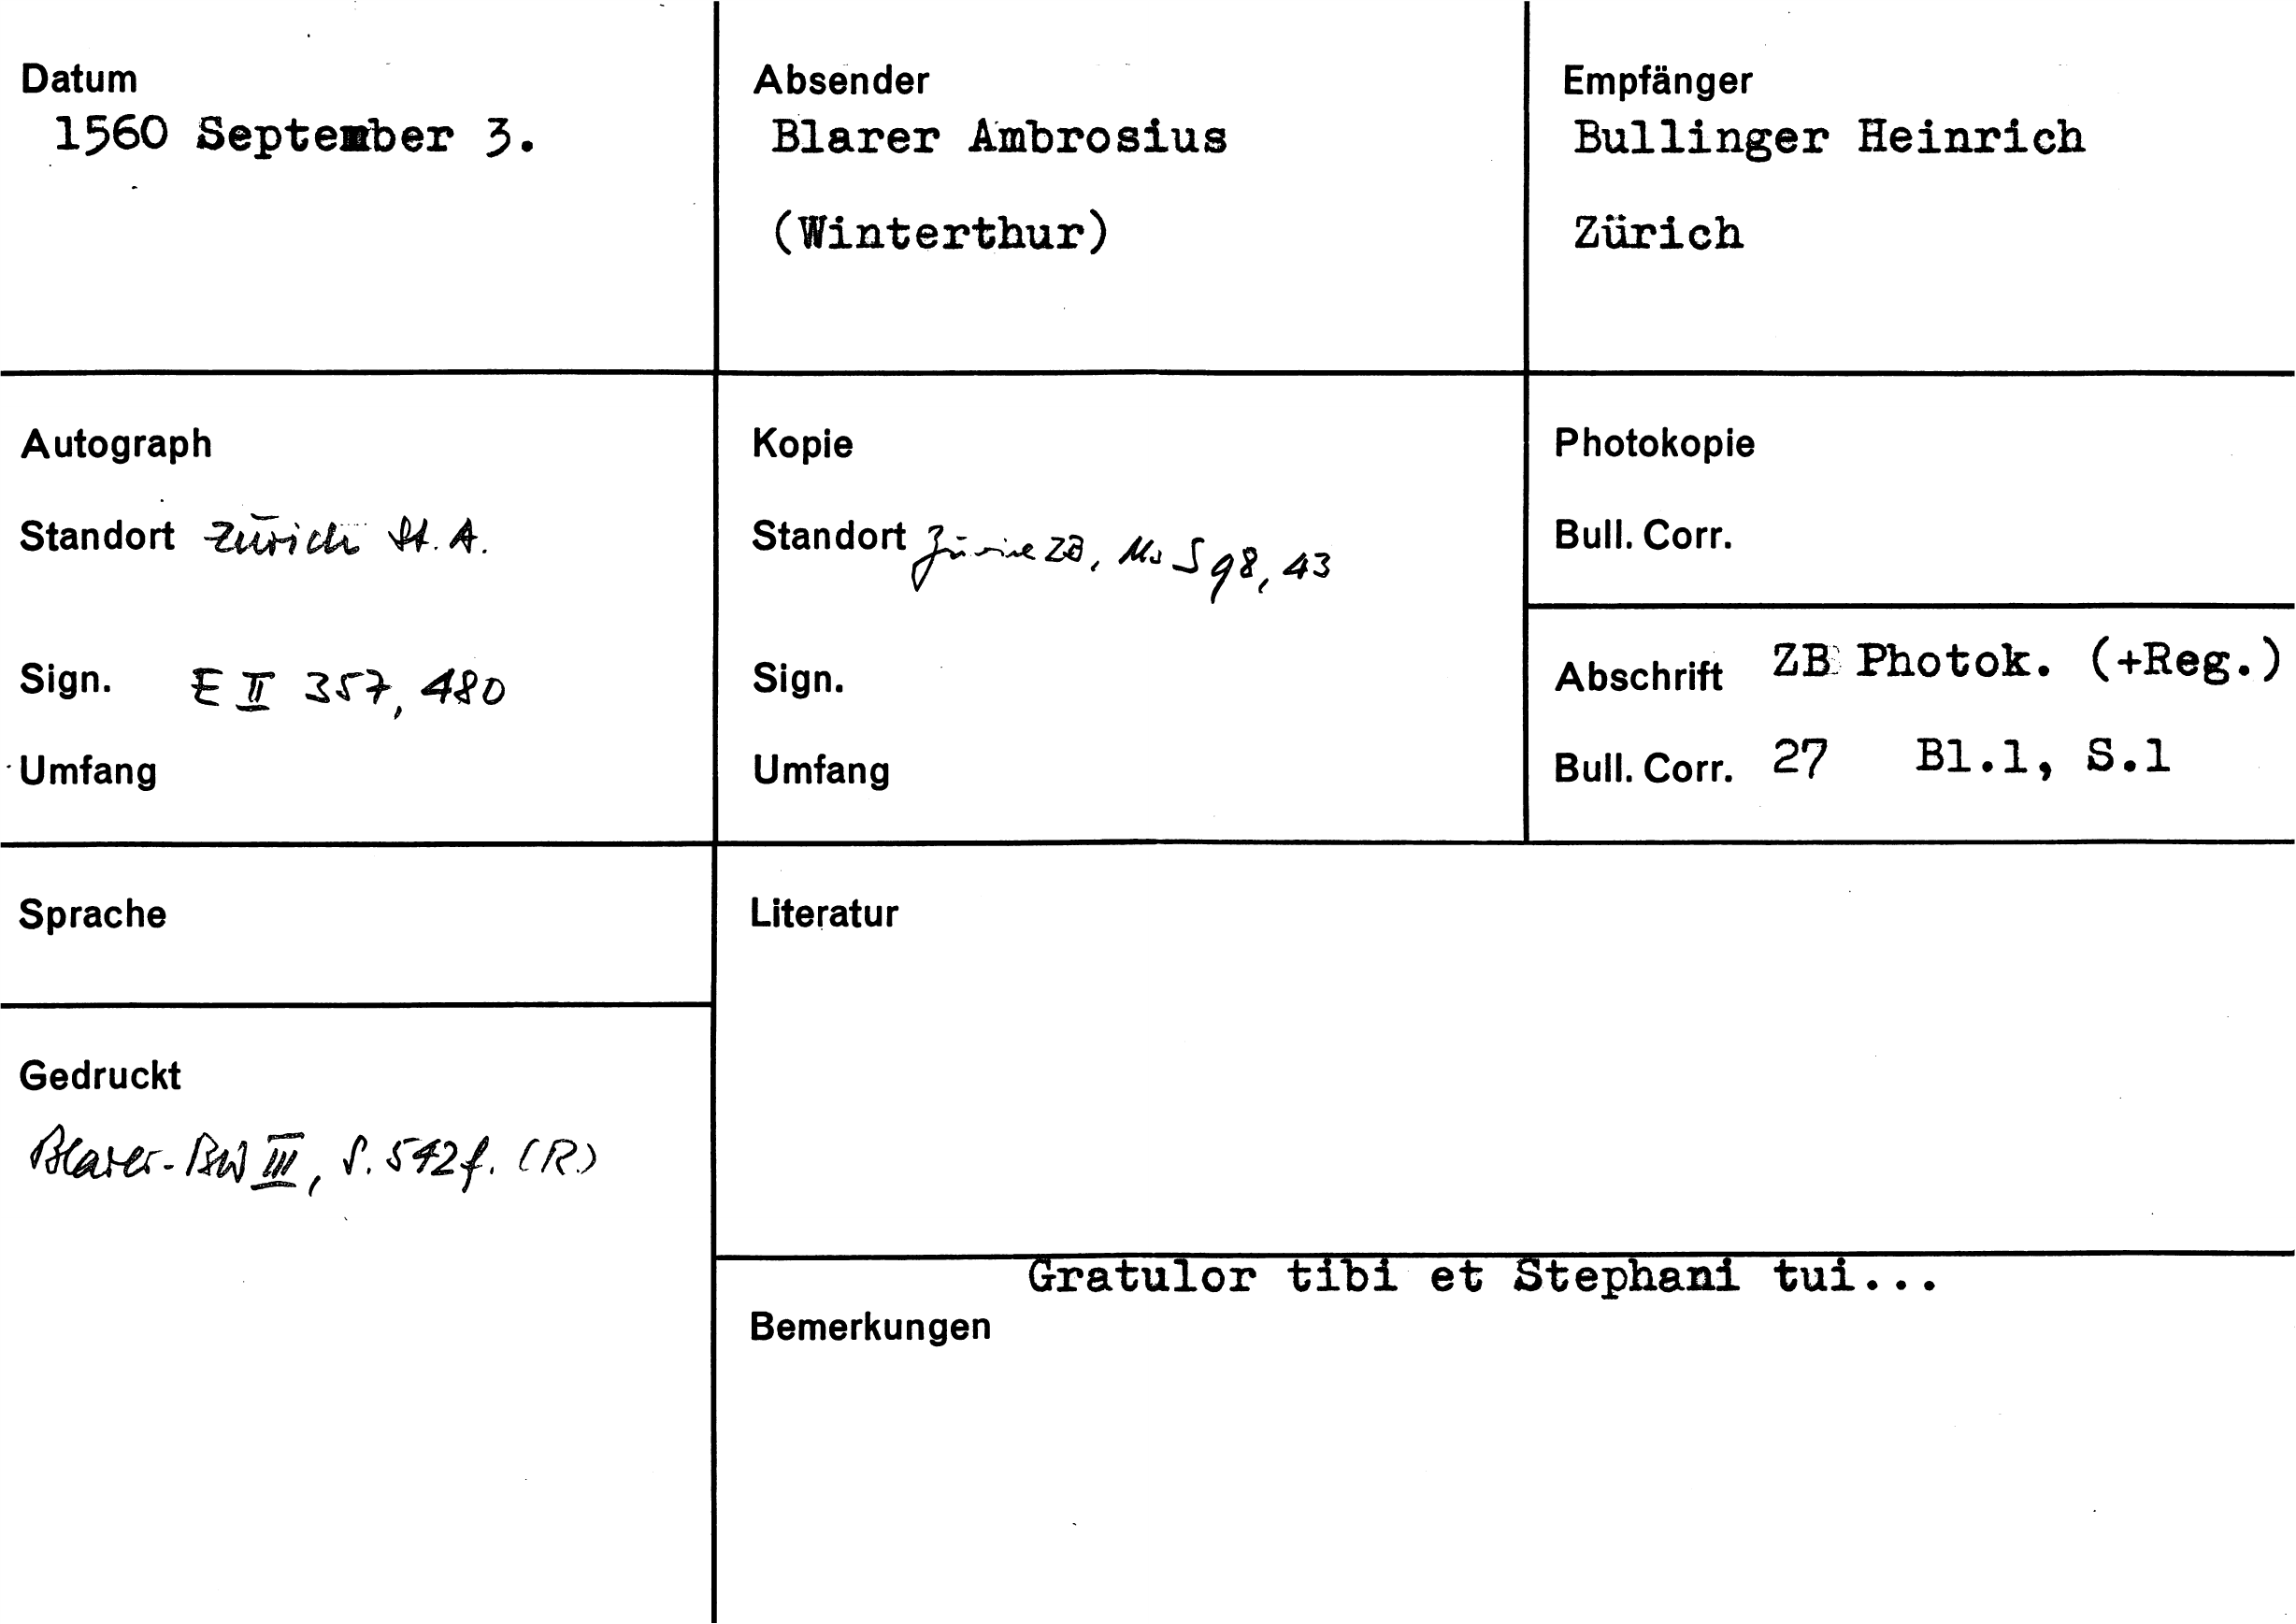 Datum
1560 September 3.
Absender
Blarer Ambrosius
(Winterthur)
Empfänger
Bullinger Heinrich
Zürich
Autograph
Standort Zürich St. A.
Sign. E II 357, 480
Umfang
Kopie
Standort Zürich ZB, Ms S 98, 43
Sign.
Umfang
Photokopie
Bull. Corr.
Abschrift ZB Photok. (+Reg.)
Bull. Corr. 27 Bl.1, S.1
Sprache
Literatur
Gedruckt
Blarer-BW III, S. 542f. (R.)
Gratulor tibi et Stephani tui...
Bemerkungen